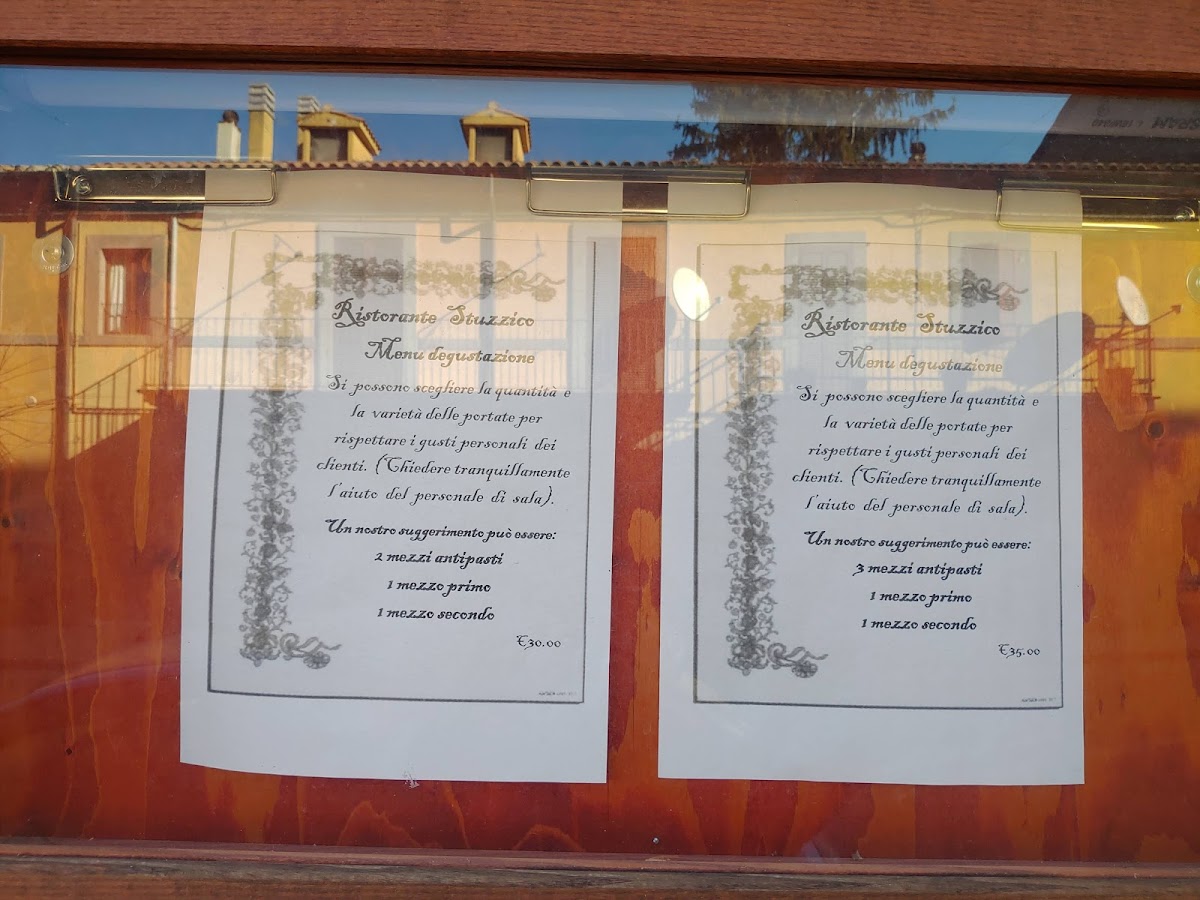 Ristorante Stuzzico
Menu degustazione
Si possono scegliere la quantità e
la varietà delle portate per
rispettare i gusti personali dei
clienti. (Chiedere tranquillamente
l'aiuto del personale di sala).
Un nostro suggerimento può essere:
2 mezzi antipasti
1 mezzo primo
1 mezzo secondo
€30.00
Ristorante Stuzzico
Menu degustazione
Si possono scegliere la quantità e
la varietà delle portate per
rispettare i gusti personali dei
clienti. (Chiedere tranquillamente
l'aiuto del personale di sala).
Un nostro suggerimento può essere:
3 mezzi antipasti
1 mezzo primo
1 mezzo secondo
€35.00